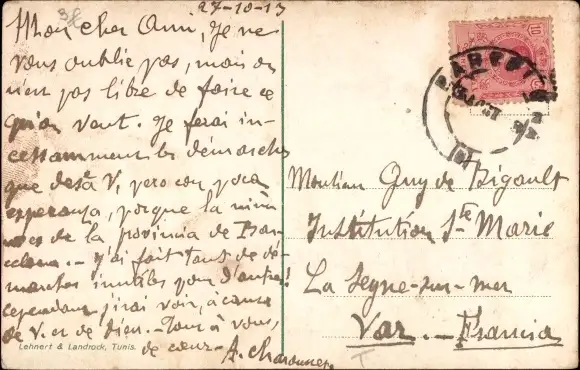 27-10-13
Mon cher Ami, Je ne
vous oublie pas, mais on
n'en pas libre de faire ce
qu'on veut. Je ferai in-
cessamment les démarches
que desea V, pero con poca
esperanza, porque la
de la provincia de Bar-
celona. - J'ai fait tant de dé-
marches inutiles pour d'autres!
cependant j'irai voir, à cause
de V. et de Dieu. - Tout à vous,
de cœur - A.
Lehnert & Landrock, Tunis.
10
BARCELONA
Monsieur Guy de Bigault
Institution Ste Marie
La Seyne-sur-mer
Var. - Francia
T